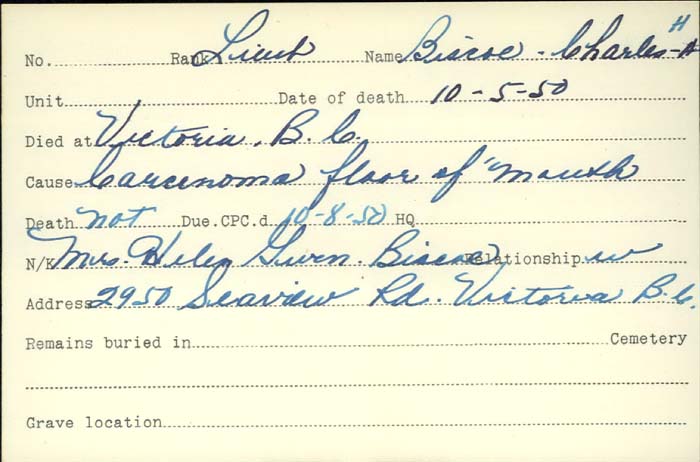 No. Rank Lieut Name Biscoe - Charles - H H
Unit Date of death 10-5-50
Died at Victoria, B.C.
Cause Carcinoma floor of mouth
Death not Due.CPC.d 10-8-50 HQ
N/K Mrs Helen Gwen. Biscoe Relationship w
Address 2950 Seaview Rd. Victoria B.C.
Remains buried in Cemetery
Grave location